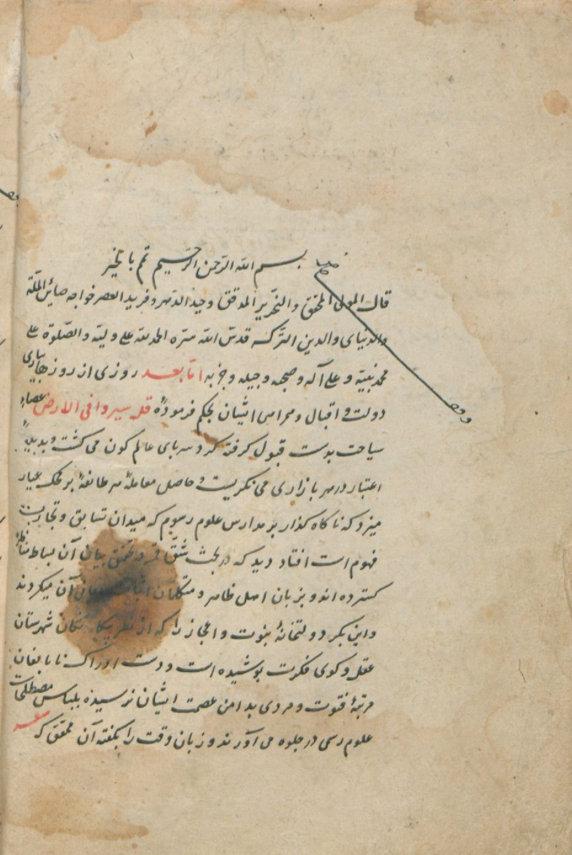 بسم الله الرحمن الرحیم تمم بالخیر
قال المولی المحقق والنحریر المدقق وحید الدهر و فرید العصر خواجه صاین الملة
والدنیا والدین الترکه قدس الله سره الحمد لله علی ولیه والصلوة علی
محمد نبیه و علی آله و صحبه و حزبه اما بعد روزی از روزهای
دولت و اقبال ایشان بحکم فرموده قل سیروا فی الارض عصای
سیاحت بدست قبول گرفته گرد سرپای عالم کون می گشت و بدیده
اعتبار در هر بازاری می نگریست و حاصل معامله هر طائفه بر محک عیار
میزد که ناگاه گذار بر مدارس علوم رسوم که میدان تسابق و تجارب
فهوم است افتاد دید که در بحث شق قمر و بیانی آن بساط
گسترده اند و بزبان اهل ظاهر و متکلمان آن میکردند
و این بکر دولتخانه نبوت و اعجاز را که از شهرستان
عقل و کوی فکرت پوشیده است و دست ادراک نابالغان
مرتبه فتوت و مردی بدامن عصمت ایشان نرسیده بلباس مصطلحات
علوم رسمی در جلوه می آورند و زبان وقت را بگفته آن محقق که